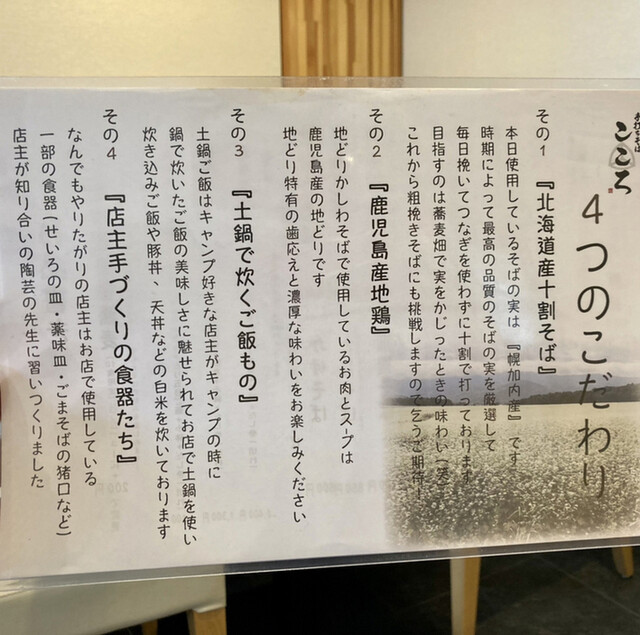 こころ
4つのこだわり
その1 『北海道産十割そば』
本日使用しているそばの実は 『幌加内産』 です
時期によって最高の品質のそばの実を厳選して
毎日挽いてつなぎを使わずに十割で打っております
目指すのは蕎麦畑で実をかじったときの味わい
これから粗挽きそばにも挑戦しますので乞うご期待！
その2 『鹿児島産地鶏』
地どりかしわそばで使用しているお肉とスープは
鹿児島産の地どりです
地どり特有の歯応えと濃厚な味わいをお楽しみください
その3 『土鍋で炊くご飯もの』
土鍋ご飯はキャンプ好きな店主がキャンプの時に
鍋で炊いたご飯の美味しさに魅せられてお店で土鍋を使い
炊き込みご飯や豚丼、天丼などの白米を炊いております
その4 『店主手づくりの食器たち』
なんでもやりたがりの店主はお店で使用している
一部の食器(せいろの皿・薬味皿・ごまそばの猪口など)
店主が知り合いの陶芸の先生に習いつくりました